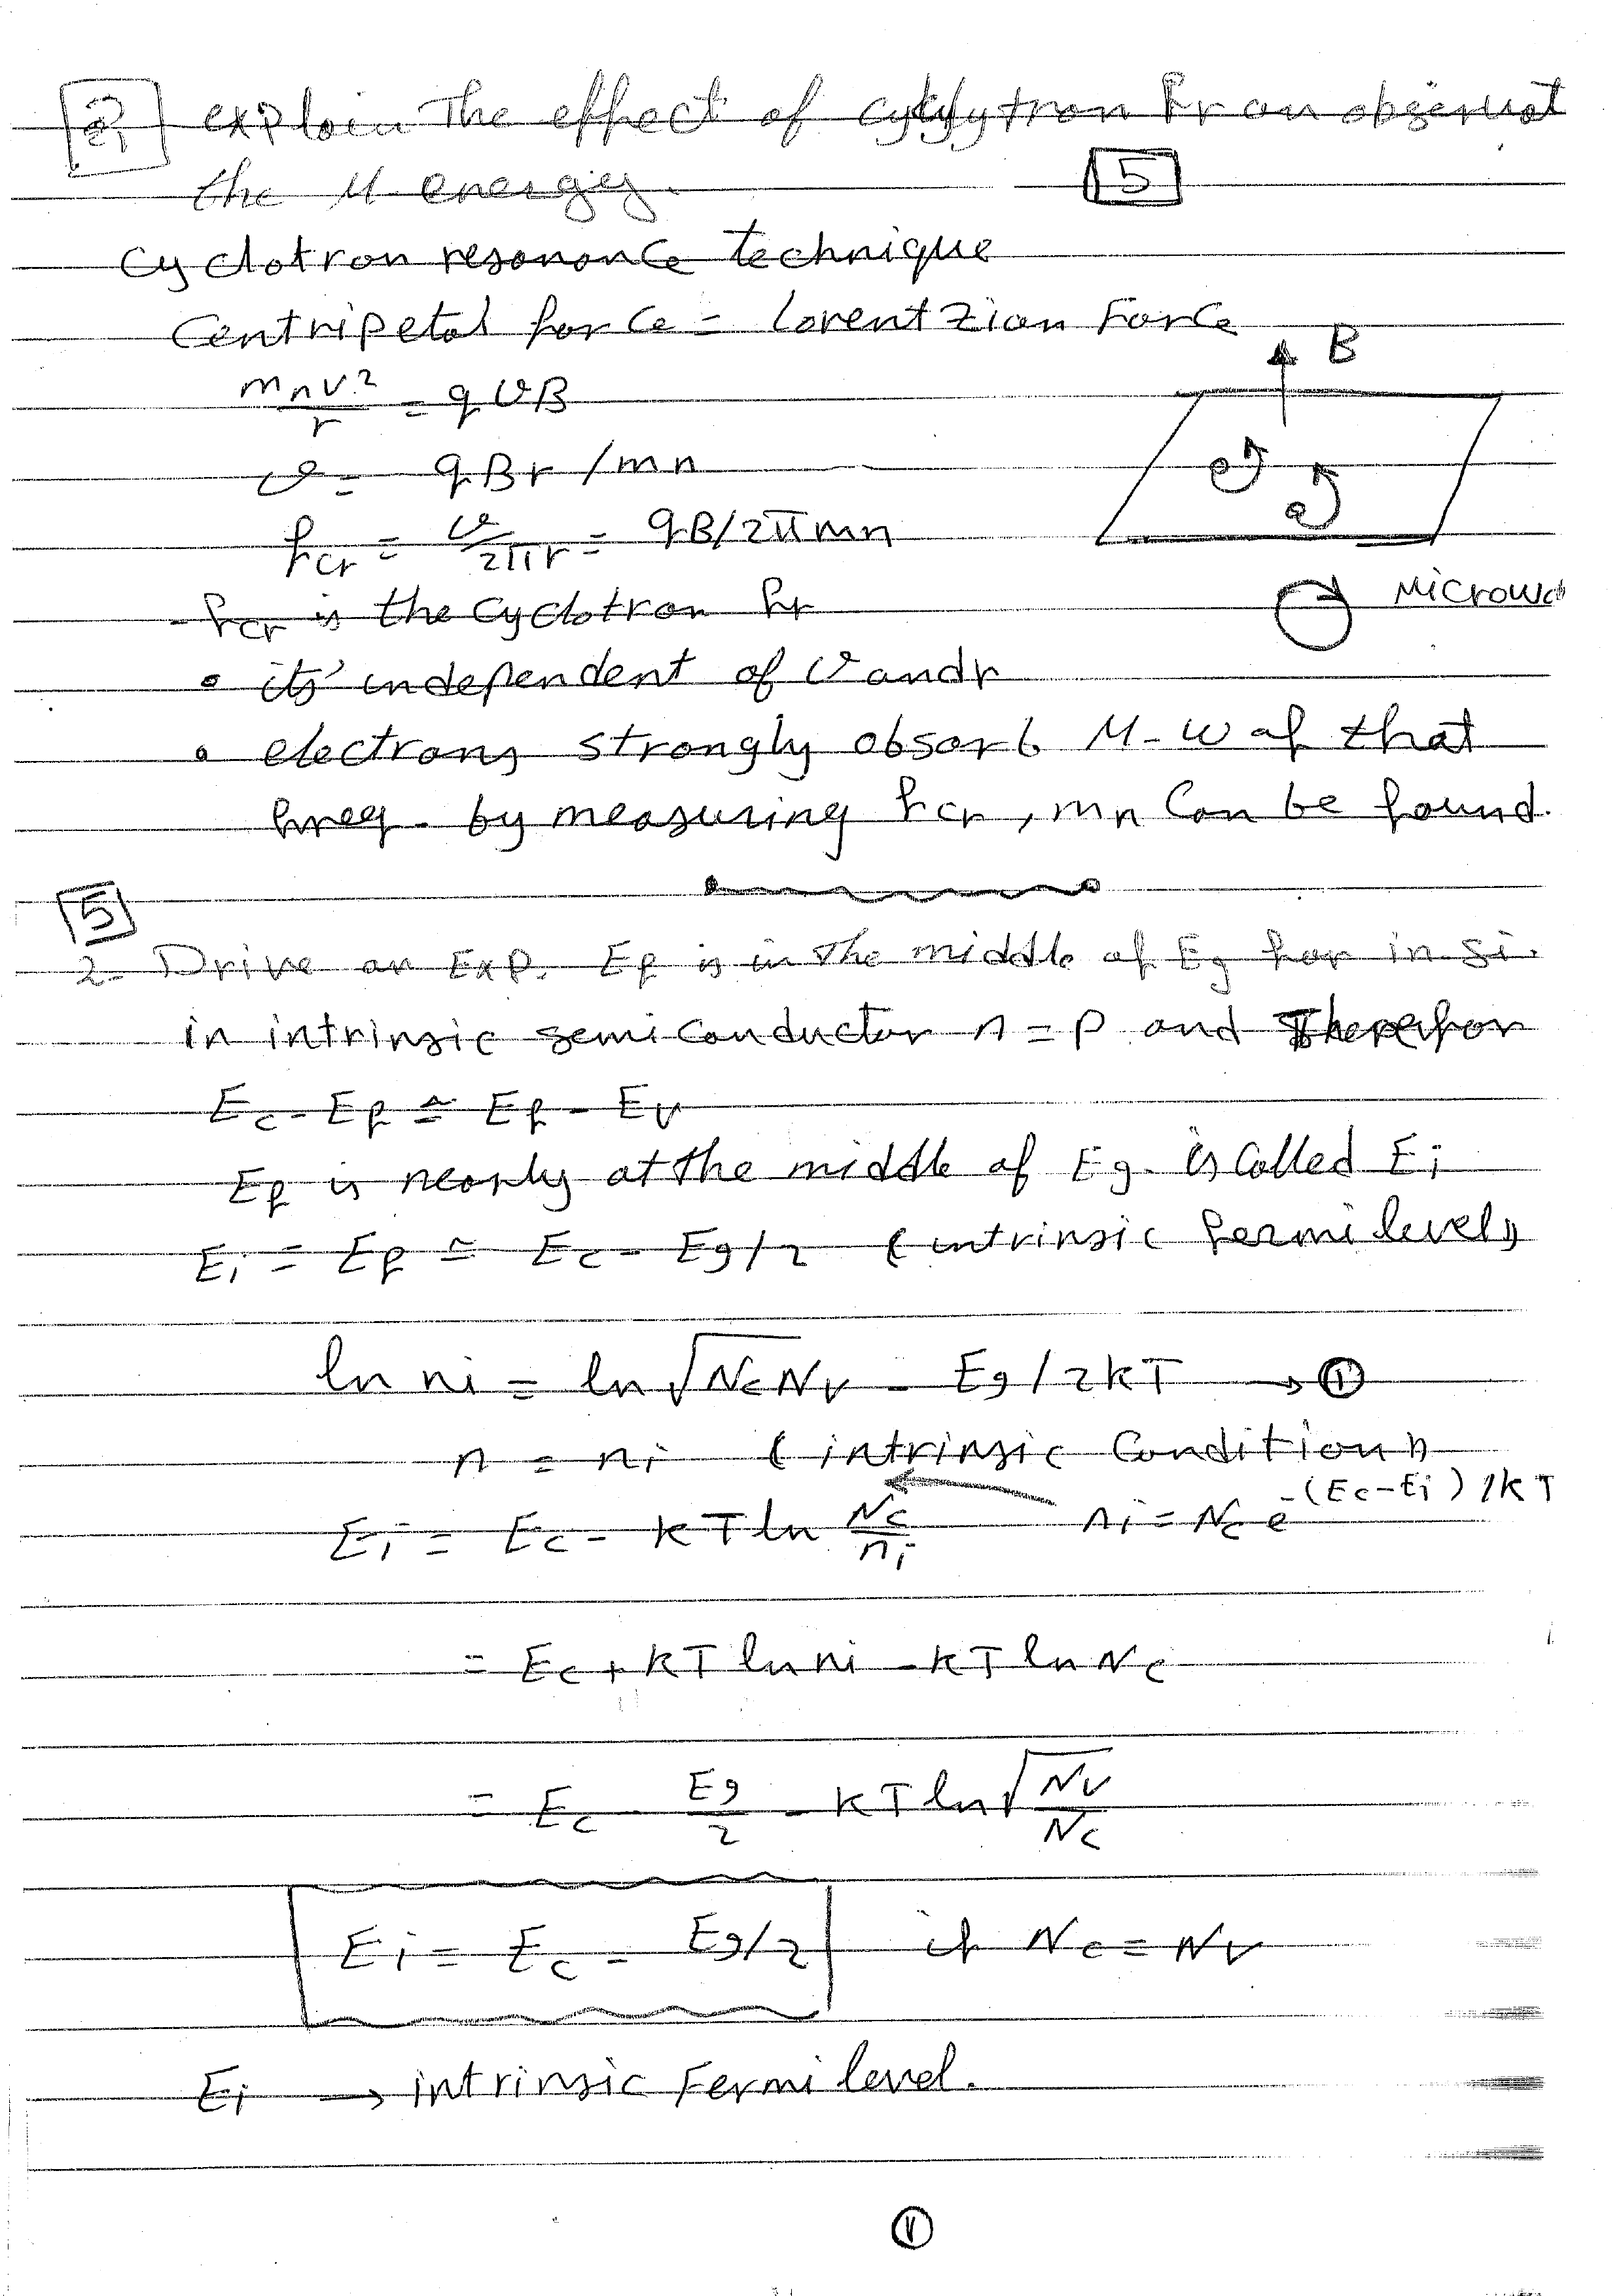 explain The effect of Fr on
the M energies.
[5]
Cyclotron resonance technique
Centripetal force = Lorentzian Force
B
mnv²/r = qvB
v = qBr/mn
fcr = v/2πr = qB/2πmn
Microwa
- fcr is the cyclotron fr
• its independent of v and r
• electrons strongly absorb M-W of that
freq. by measuring fcr, mn Can be found.
[5]
2- Drive an Exp. Ef is in The middle of Eg for in. Si.
in intrinsic semiconductor n = p and Therefor
Ec - Ef ≃ Ef - Ev
Ef is nearly at the middle of Eg. is Called Ei
Ei = Ef ≃ Ec - Eg/2 (intrinsic fermi level)
ln ni = ln √NcNv - Eg/2kT → ①
n = ni (intrinsic Condition)
Ei = Ec - kT ln Nc/ni ni = Nc e^-(Ec-Ei)/kT
= Ec + kT ln ni - kT ln Nc
= Ec - Eg/2 - kT ln √Nv/Nc
Ei = Ec - Eg/2 if Nc = Nv
Ei → intrinsic Fermi level.
①